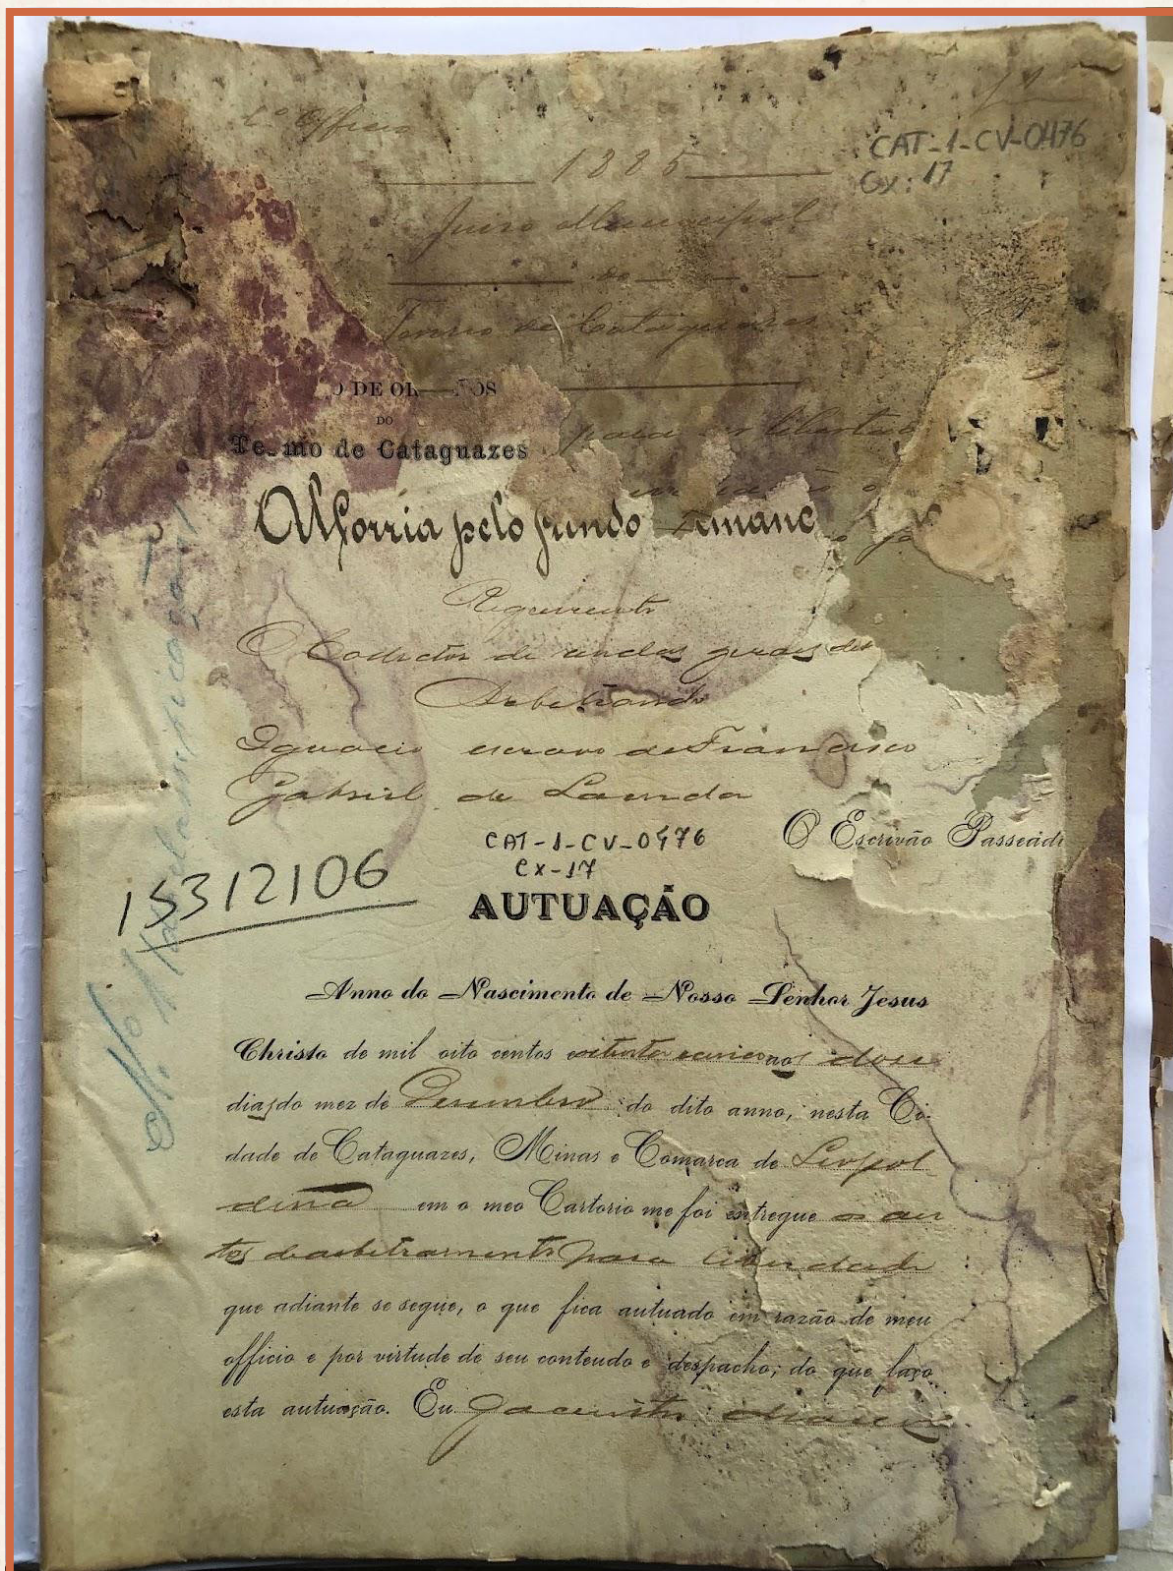 1º Officio
1885
CAT-1-CV-0476
Cx: 17
Juizo Municipal
do
Termo de Cataguazes
O DE OR NOS
DO
Te mo de Cataguazes
para
Alforria pelo fundo emanc
Requerente
O Collector de rendas geraes
Arbitrando
Ignacio escravo de Francisco
Gabriel de Lacerda
O Escrivão Passeado
CAT-1-CV-0476
Cx-17
15312106
AUTUAÇÃO
Anno do Nascimento de Nosso Senhor Jesus
Christo de mil oito centos oitenta e cinco aos doze
dias do mez de Dezembro do dito anno, nesta Ci-
dade de Cataguazes, Minas e Comarca de Leopol
dina em o meo Cartorio me foi entregue os au
tos de arbitramento para liberdade
que adiante se segue, o que fica autuado em razão de meu
officio e por virtude de seu conteudo e despacho; do que faço
esta autuação. Eu Jacintho